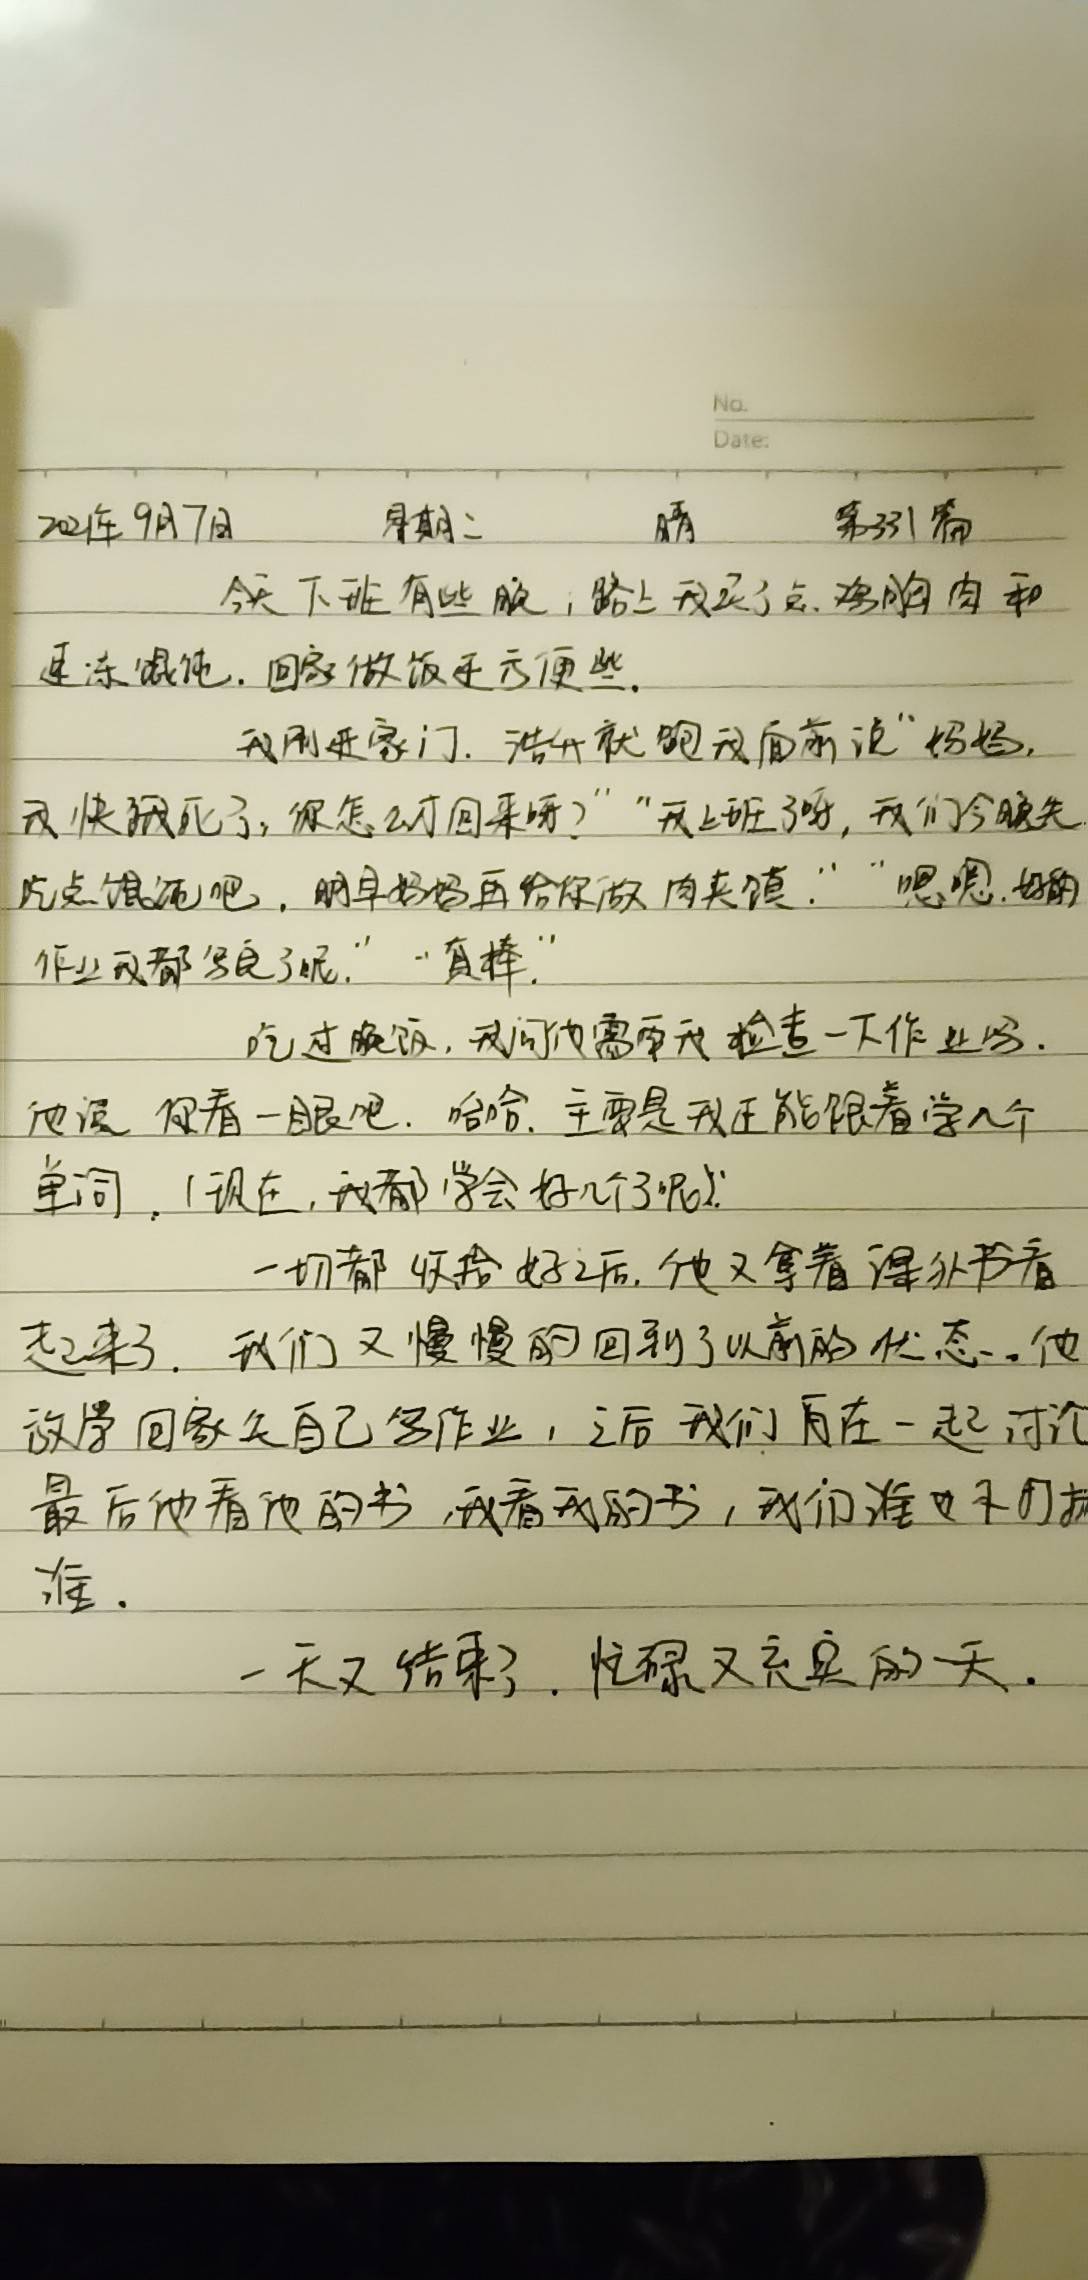 No.
Date:
2021年9月7日 星期二 晴 第331篇
今天下班有些晚,路上我买了点鸡胸肉和
速冻馄饨.回家做饭还方便些.
我刚进家门.浩升就跑我面前说"妈妈,
我快饿死了,你怎么才回来呀?""我上班了呀,我们今晚先
吃点馄饨吧,明早妈妈再给你做肉夹馍.""嗯嗯.好的
作业我都写完了呢.""真棒."
吃过晚饭,我问他需要我检查一下作业吗.
他说 你看一眼吧.哈哈.主要是我还能跟着学几个
单词.(现在,我都学会好几个了呢).
一切都收拾好之后.他又拿着课外书看
起来了.我们又慢慢的回到了以前的状态.他
放学回家先自己写作业,之后我们再在一起讨论
最后他看他的书,我看我的书,我们谁也不打扰
谁.
一天又结束了.忙碌又充实的一天.